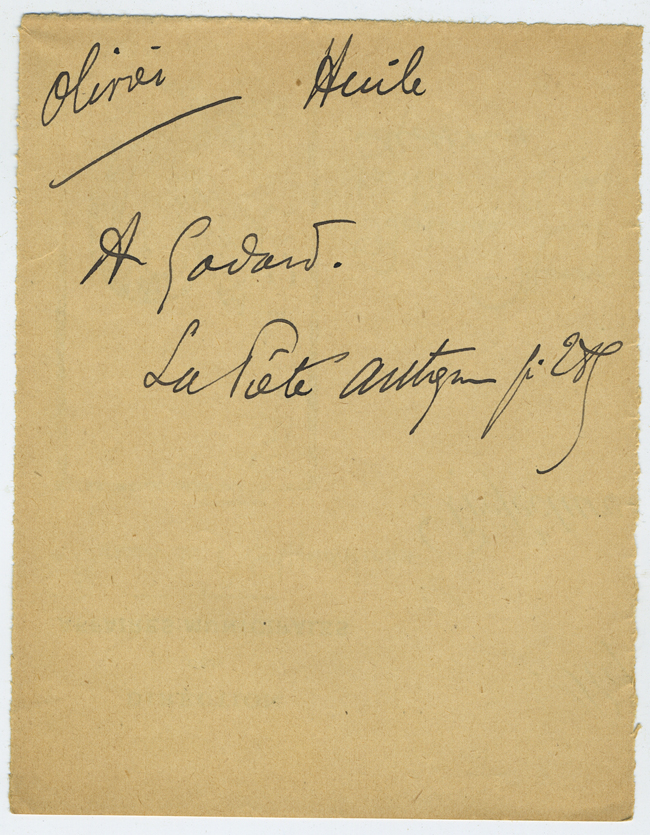 Olivier Huile
A Godard.
La Piété antique p. 285